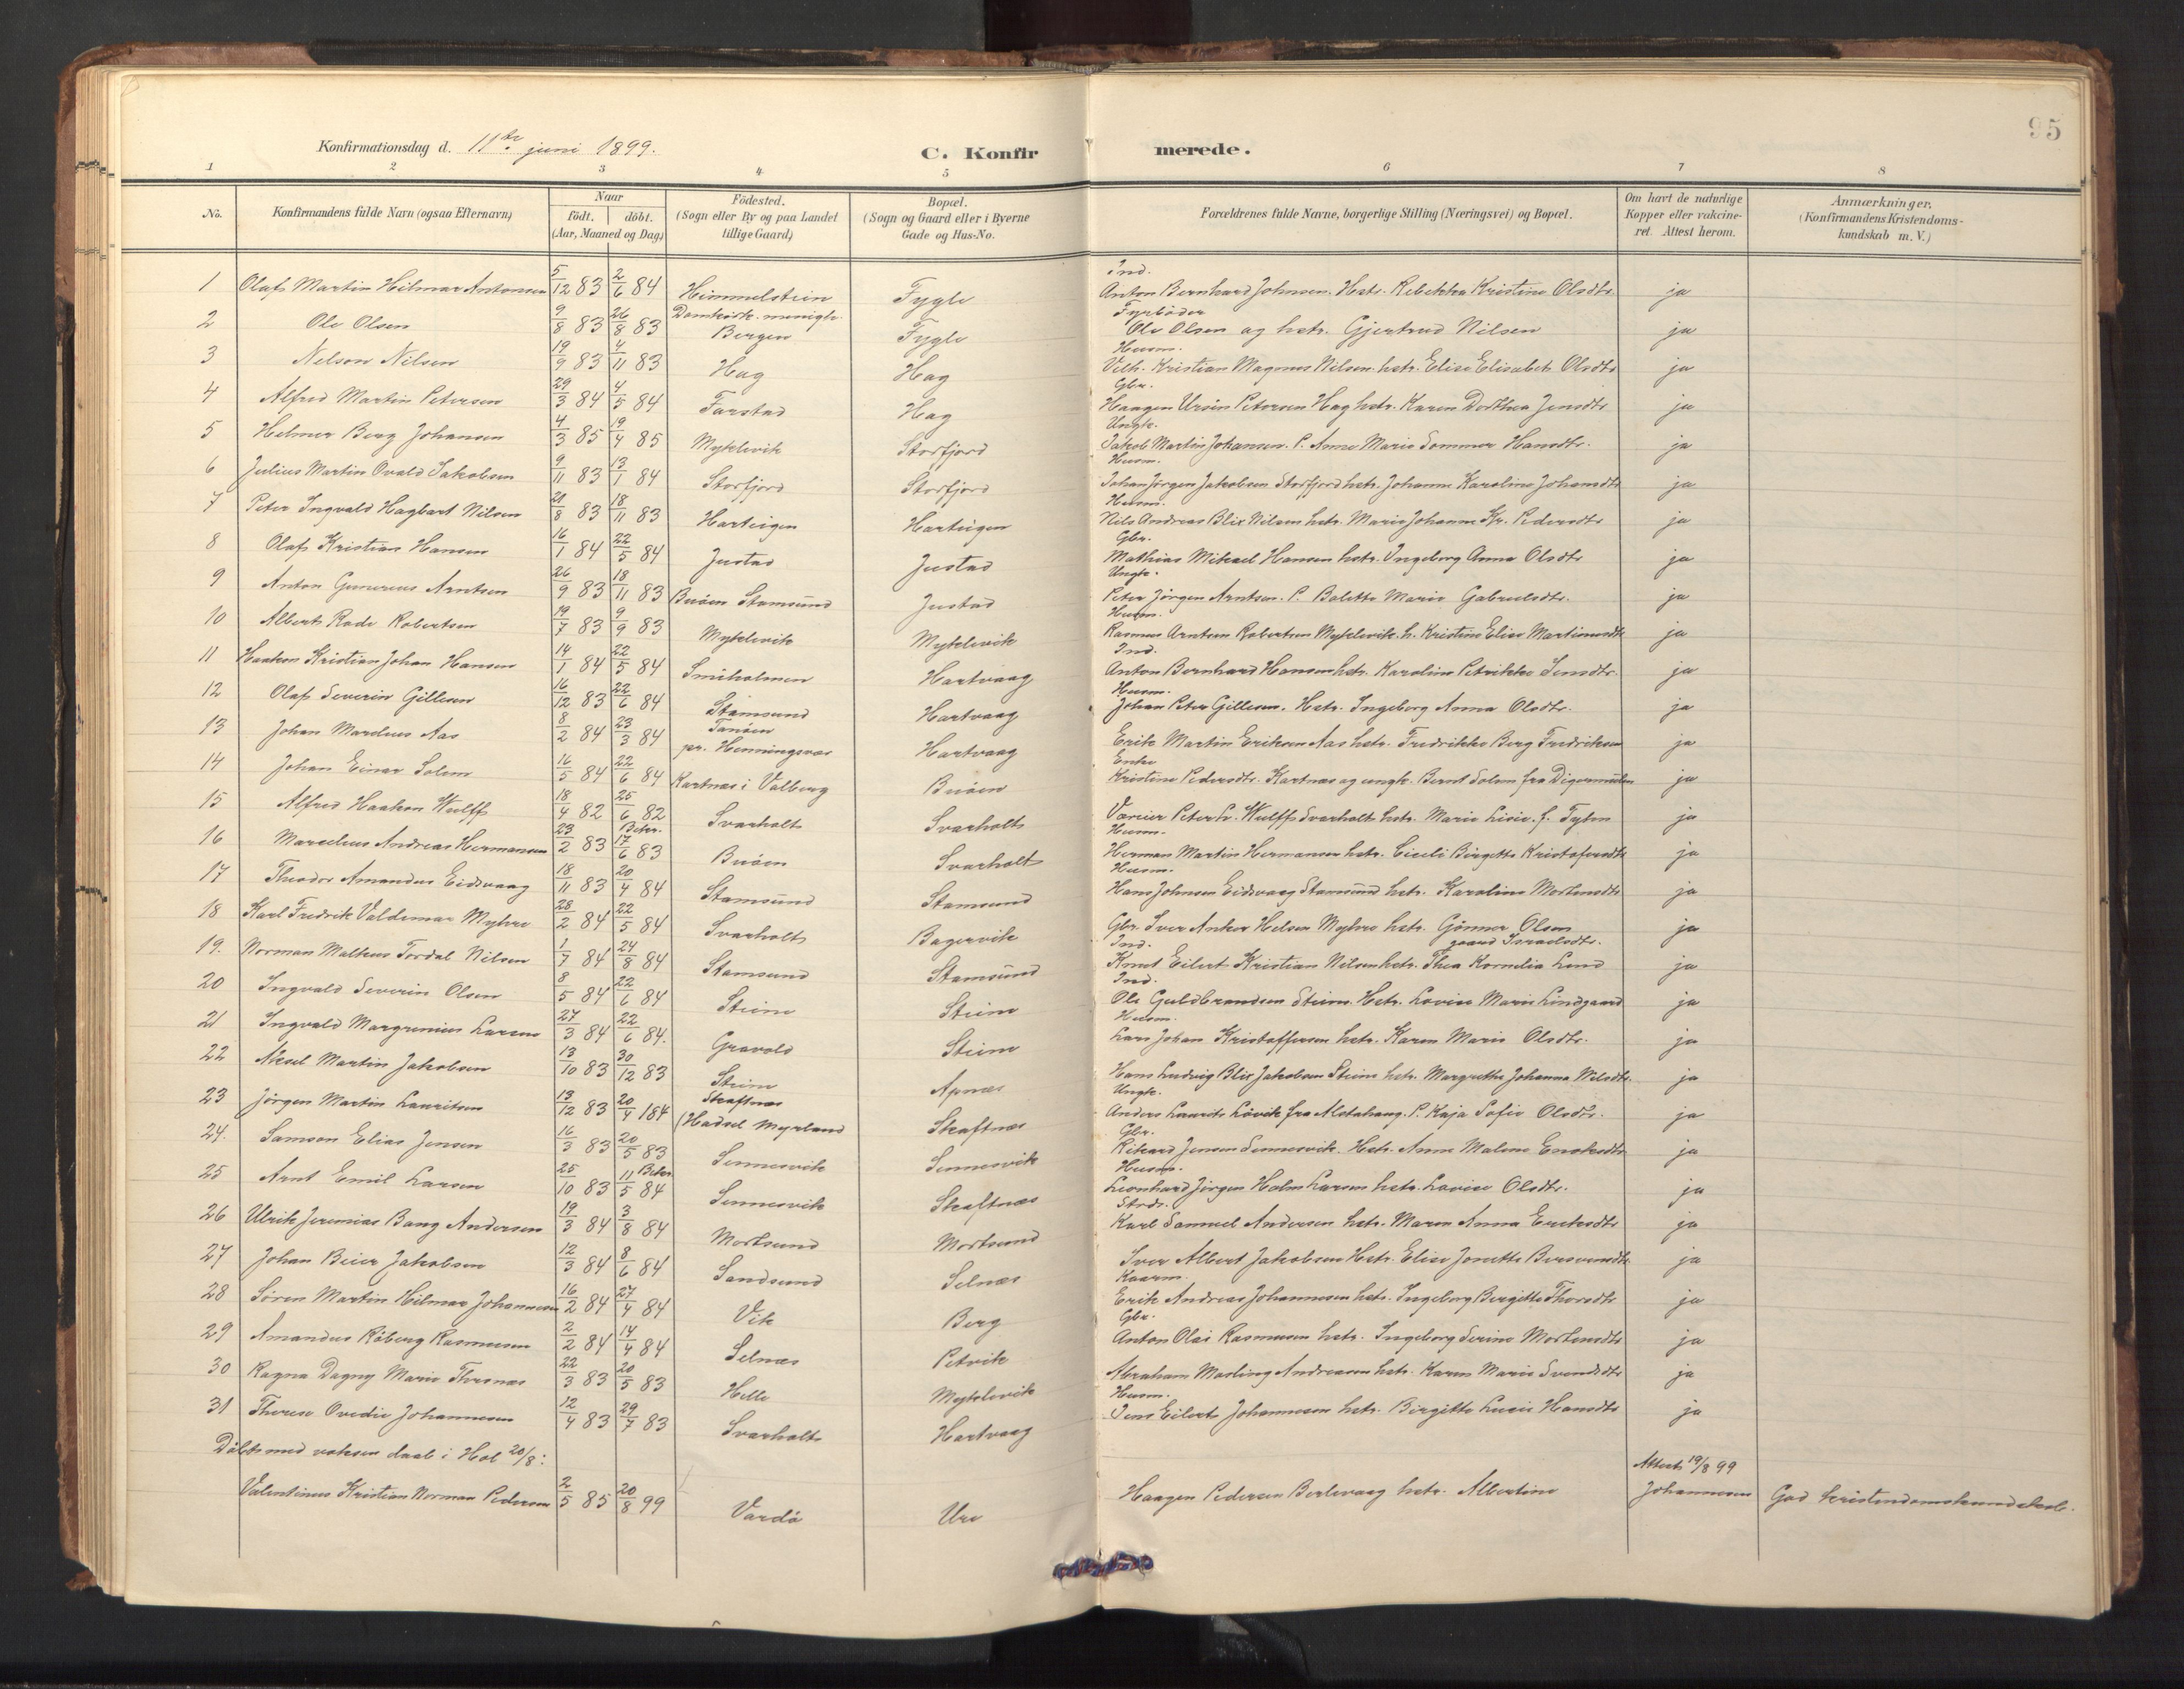 95
Konfirmationsdag d. 11te juni 1899.
C. Konfirmerede.
1 2 3 4 5 6 7 8
No.
Konfirmandens fulde Navn (ogsaa Efternavn)
Naar
födt. döbt.
(Aar, Maaned og Dag)
Födested.
(Sogn eller By og paa Landet tillige Gaard)
Bopæl.
(Sogn og Gaard eller i Byerne Gade og Hus-No.
Forældrenes fulde Navne, borgerlige Stilling (Næringsvei) og Bopæl.
Om havt de naturlige Kopper eller vakcineret. Attest herom.
Anmærkninger.
(Konfirmandens Kristendomskundskab m. V.)
1 Olaf Martin Hilmar Antonsen 5/12 83 2/6 84 Himmelstein Fygle Ind. Anton Bernhard Johnsen. Hstr. Rebekka Kristine Olsdtr. ja
2 Ole Olsen 9/8 83 26/8 83 Domkirk. menigh. Bergen Fygle Fyrböder Ole Olsen og hstr. Gjertrud Nilsen ja
3 Nelson Nilsen 19/9 83 4/11 83 Hag Hag Husm. Vilh. Kristian Magnus Nilsen. hstr. Elise Elisabet Olsdtr ja
4 Alfred Martin Petersen 29/3 84 4/5 84 Farstad Hag Gbr. Haagen Ursin Petersen Hag hstr. Karen Dorthea Jensdtr ja
5 Helmer Berg Johansen 4/3 85 19/4 85 Myklevik Storfjord Ungk. Jakob Martin Johansen. P. Anne Marie Sommer Hansdtr. ja
6 Julius Martin Ovald Jakobsen 9/11 83 13/1 84 Storfjord Storfjord Husm. Johan Jörgen Jakobsen Storfjord hstr. Johanna Karoline Johansdtr ja
7 Peter Ingvald Hagbart Nilsen 21/8 83 18/11 83 Harteigen Harteigen Husm. Nils Andreas Blix Nilsen hstr. Marie Johanna Kr. Pedersdtr ja
8 Olaf Kristian Hansen 16/1 84 22/5 84 Justad Justad Gbr. Mathias Mikael Hansen hstr. Ingeborg Anna Olsdtr ja
9 Anton Gunerius Arntsen 26/9 83 18/11 83 Buöen Stamsund Justad Ungk. Peter Jörgen Arntsen. P. Bolette Marie Gabrielsdtr. ja
10 Albert Rode Robertsen 19/7 83 9/9 83 Myklevik Myklevik Husm. Rasmus Arntsen Robertsen Myklevik. h. Kristine Elise Martinusdtr ja
11 Haakon Kristian Johan Hansen 14/1 84 22/5 84 Smiholmen Hartvaag Ind. Anton Bernhard Hansen hstr. Karoline Petrikke Jensdtr. ja
12 Olaf Severin Gillesen 16/12 83 22/6 84 Stamsund Hartvaag Husm. Johan Peter Gillesen. Hstr. Ingeborg Anna Olsdtr. ja
13 Johan Marelius Aas 8/2 84 23/3 84 Tanöen pr. Henningsvær Hartvaag Erik Martin Eriksen Aas hstr. Fredrikke Berg Fredriksen ja
14 Johan Einar Solem 16/5 84 22/6 84 Kartnæs i Valberg Buöen Enke Kristine Pedersdtr. Kartnæs og ungk. Bernt Solem fra Digermulen ja
15 Alfred Haakon Wulff 18/4 82 25/6 82 Svarholt Svarholt Væreier Peter Chr. Wulff Svarholt hstr. Marie Lisie. f. Tylen ja
16 Marcelius Andreas Hermansen 23/2 83 Bekr. 17/6 83 Buöen Svarholt Husm. Herman Martin Hermansen hstr. Cicili Birgitte Kristofersdtr ja
17 Theodor Amandus Eidsvaag 18/11 83 20/4 84 Stamsund Stamsund Husm. Hans Johnsen Eidsvaag Stamsund hstr. Karoline Mortensdtr ja
18 Karl Fredrik Valdemar Myhre 28/2 84 22/5 84 Svarholt Bagervik Gbr. Iver Anker Helsen Myhre hstr. Gönner Olsen gaard Israelsdtr. ja
19. Norman Malkus Tordal Nilsen 1/7 84 24/8 84 Stamsund Stamsund Ind. Knut Eilert Kristian Nilsen hstr. Thea Kornelia Lund ja
20 Ingvald Severin Olsen 8/5 84 22/6 84 Steine Steine Ind. Ole Guldbrandsen Steine. Hstr. Lovise Marie Lindgaard ja
21 Ingvald Margrenius Larsen 27/3 84 22/6 84. Gravold Steine Husm. Lars Johan Kristoffersen hstr. Karen Marie Olsdtr. ja
22 Aksel Martin Jakobsen 13/10 83 30/12 83 Steine Apnæs Hans Ludvig Blix Jakobsen Steine hstr. Margrethe Johanna Nilsdtr. ja
23 Jörgen Martin Lauritsen 13/12 83 20/4 184 Skaftnæs (Hadsel Myrland Skaftnæs Ungk. Anders Laurits Lövik fra Alstahaug. P. Kaja Sofie Olsdtr. ja
24. Samson Elias Jensen 16/3 83 20/5 83 Sennesvik Sennesvik Gbr. Rikard Jensen Sennesvik. Hstr. Anne Malene Enoksdtr ja
25 Arnt Emil Larsen 25/10 83 11/5 84 Bekr. Sennesvik Skaftnæs Husm. Leonhard Jörgen Holm Larsen hstr. Lovise Olsdtr. ja
26 Ulrik Jeremias Bang Andersen 19/3 84 3/8 84 Mortsund Mortsund Strdr. Karl Samuel Andersen hstr. Maren Anna Eriksdtr ja
27 Johan Beier Jakobsen 12/3 84 8/6 84 Sandsund Selnæs Iver Albert Jakobsen Hstr. Elise Jonette Bersvendtr. ja
28 Sören Martin Hilmar Johannesen 16/2 84 27/4 84 Vik Berg Kaarm. Erik Andreas Johannesen hstr. Ingeborg Bergitte Thorsdtr ja
29 Amandus Röberg Rasmussen 2/2 84 14/4 84 Selnæs Petvik Gbr. Anton Olai Rasmussen hstr. Ingeborg Serine Mortensdtr ja
30 Ragna Dagny Marie Thesnæs 22/3 83 20/5 83 Helle Myklevik Abraham Masling Andreasen hstr. Karen Marie Svendsdtr ja
31 Therese Ovedie Johannesen 12/4 83 29/7 83 Svarholt Hartvaag Husm. Jens Eilert Johannesen hstr. Birgitte Lucie Hansdtr ja
Döbt med voksen daab i Hol 20/8:
Valentinus Kristian Norman Pedersen 2/5 85 20/8 99 Vardö Ure Haagen Pedersen Berlevaag hstr. Albertine Attest 19/8 99 Johannesen God kristendomskundskab.